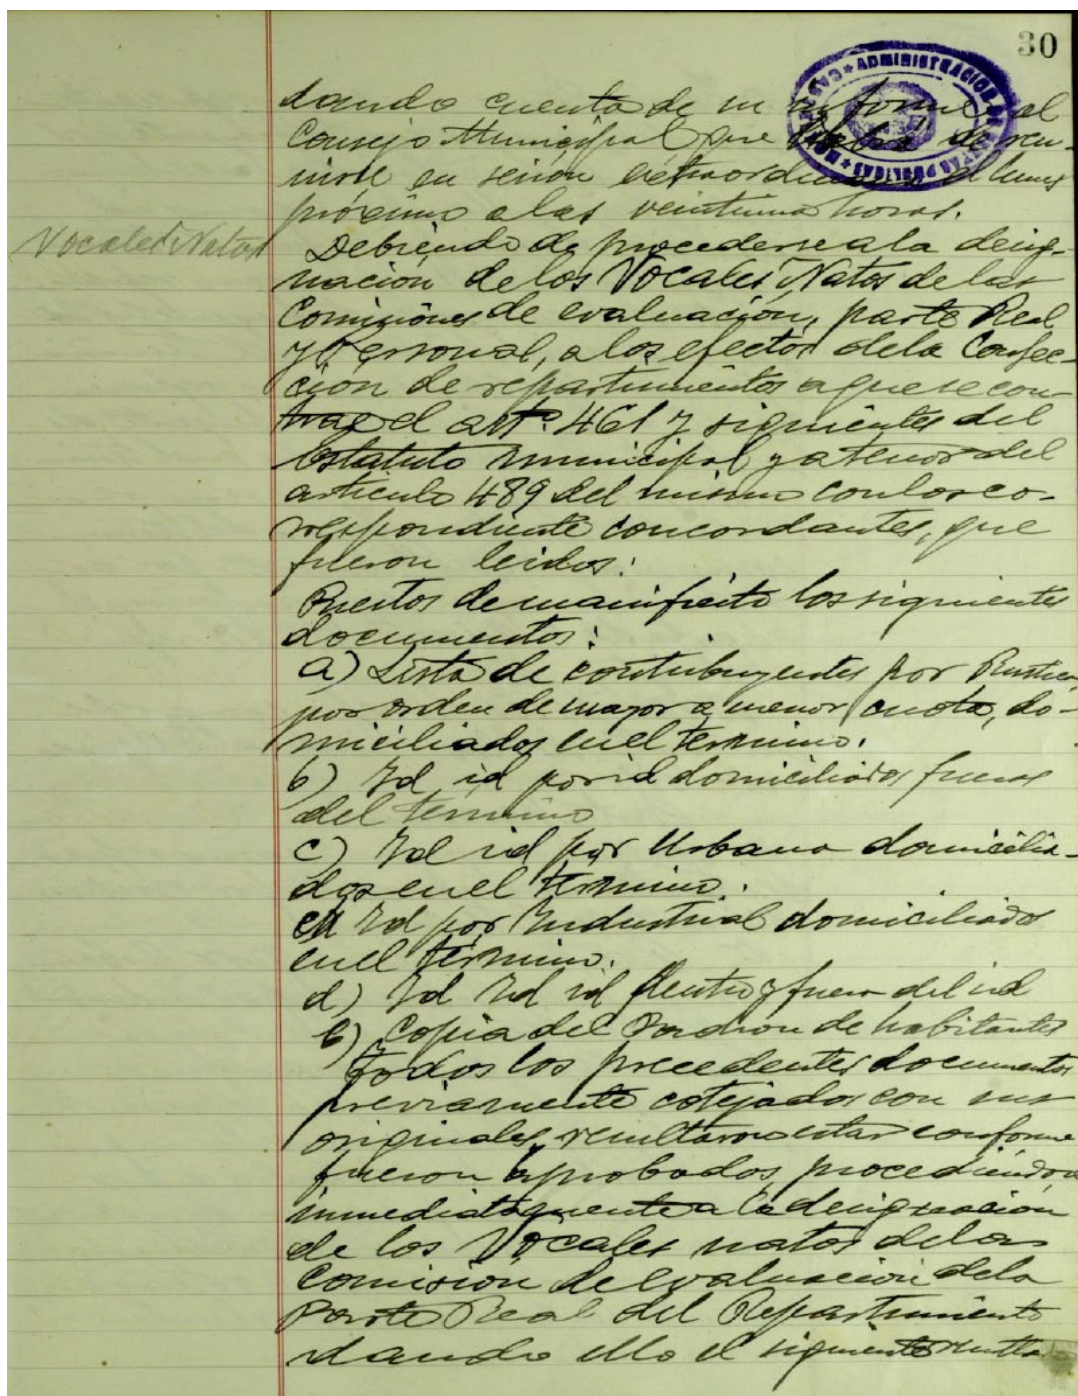 30
ADMINISTRACION DE RENTAS PUBLICAS
dando cuenta de su informe al
Consejo Municipal que habrá de reu-
nirse en sesión extraordinaria el lunes
próximo a las veintiuna horas.
Vocales Natos
Debiendo de procederse a la desig-
nación de los Vocales Natos de las
Comisiones de evaluación, parte Real
y Personal, a los efectos de la Confec-
ción de repartimientos a que se con-
trae el artº. 461 y siguientes del
Estatuto municipal y a tenor del
articulo 489 del mismo con los co-
rrespondiente concordantes, que
fueron leidos:
Puestos de manifiesto los siguientes
documentos:
a) Lista de contribuyentes por Rustica
por orden de mayor a menor cuota, do-
miciliados en el termino.
b) Id id por id domiciliados fuera
del termino
c) Id id por Urbana domicilia-
dos en el termino.
Id por Industrial domiciliados
en el término.
d) Id Id id dentro y fuera del id
e) Copia del Padron de habitantes
Todos los precedentes documentos
previamente cotejados con sus
originales, resultaron estar conforme
fueron aprobados, procediéndose
inmediatamente a la designación
de los Vocales natos de las
Comisión de evaluación de la
Parte Real del Repartimiento
dando ello el siguiente